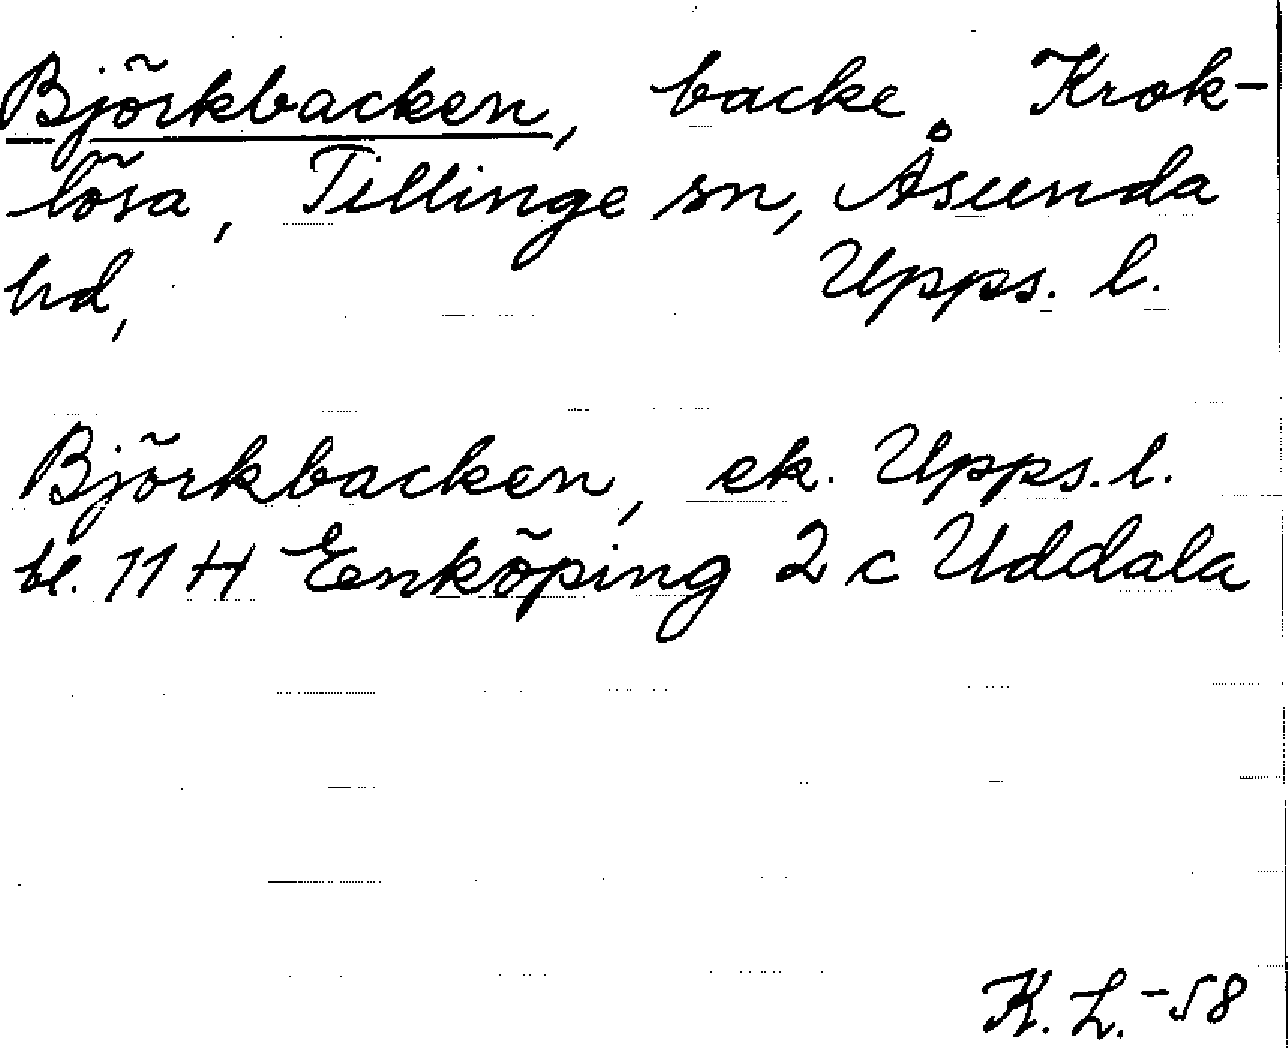 Björkbacken, backe Krok-
lösa, Tillinge sn, Åsunda
hd, Upps. l.
Björkbacken, ek. Upps. l.
bl. 11 H Enköping 2 c Uddala
K. L. -58